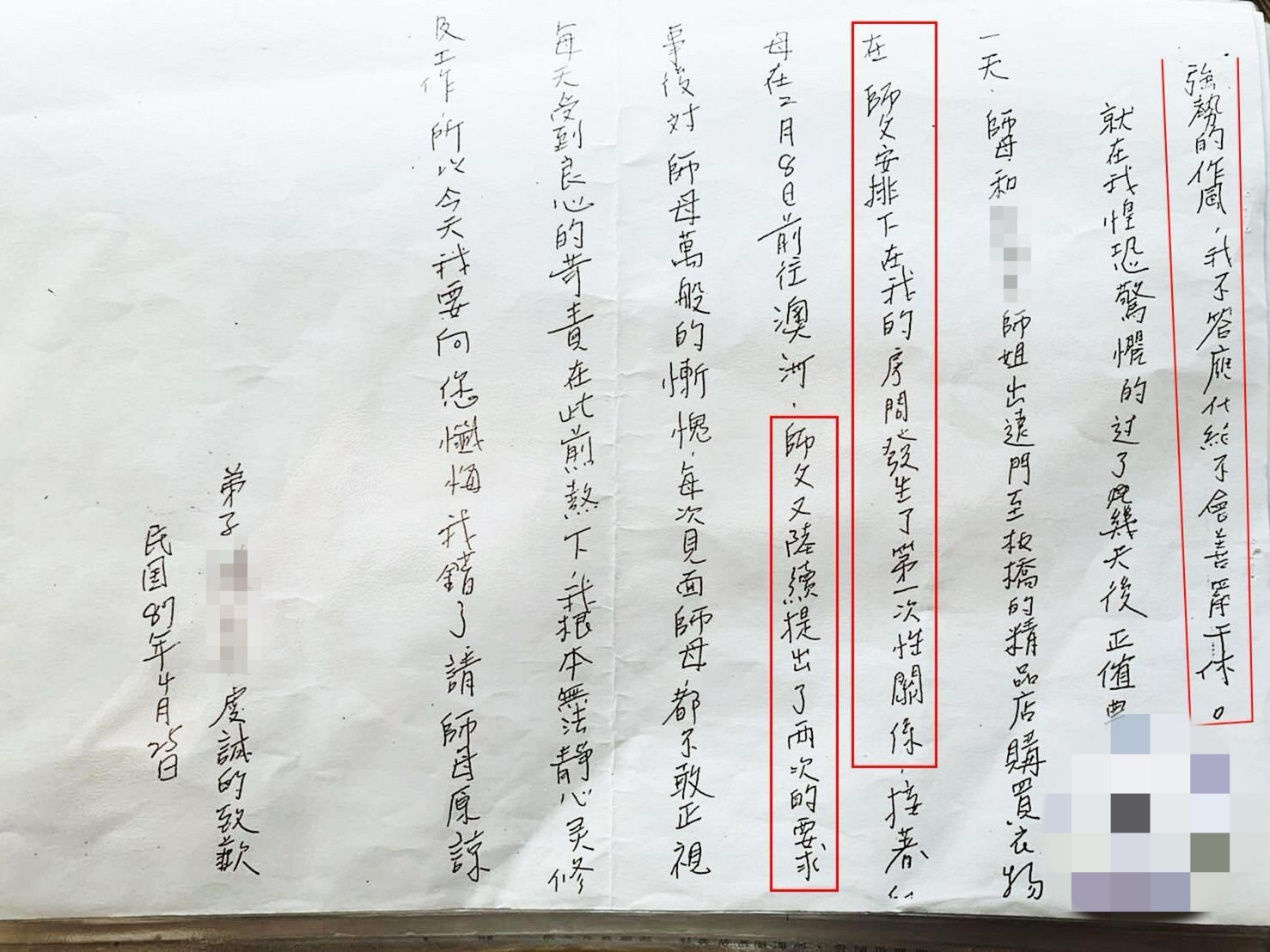 強勢的作風，我不答應代給不會善罷干休。
就在我惶恐驚懼的过了幾天後正值
一天，師母和師姐出遠門至板橋的精品店購買衣物
在師父安排下在我的房間發生了第一次性關係，接著
母在二月8日前往澳洲，師父又陸續提出了兩次的要求
事後对師母萬般的慚愧，每次見面師母都不敢正視
每天受到良心的苛責在此煎熬下，我根本無法靜心灵修
及工作，所以今天我要向您懺悔我錯了請師母原諒
弟子 虔誠的致歉
民国87年4月25日